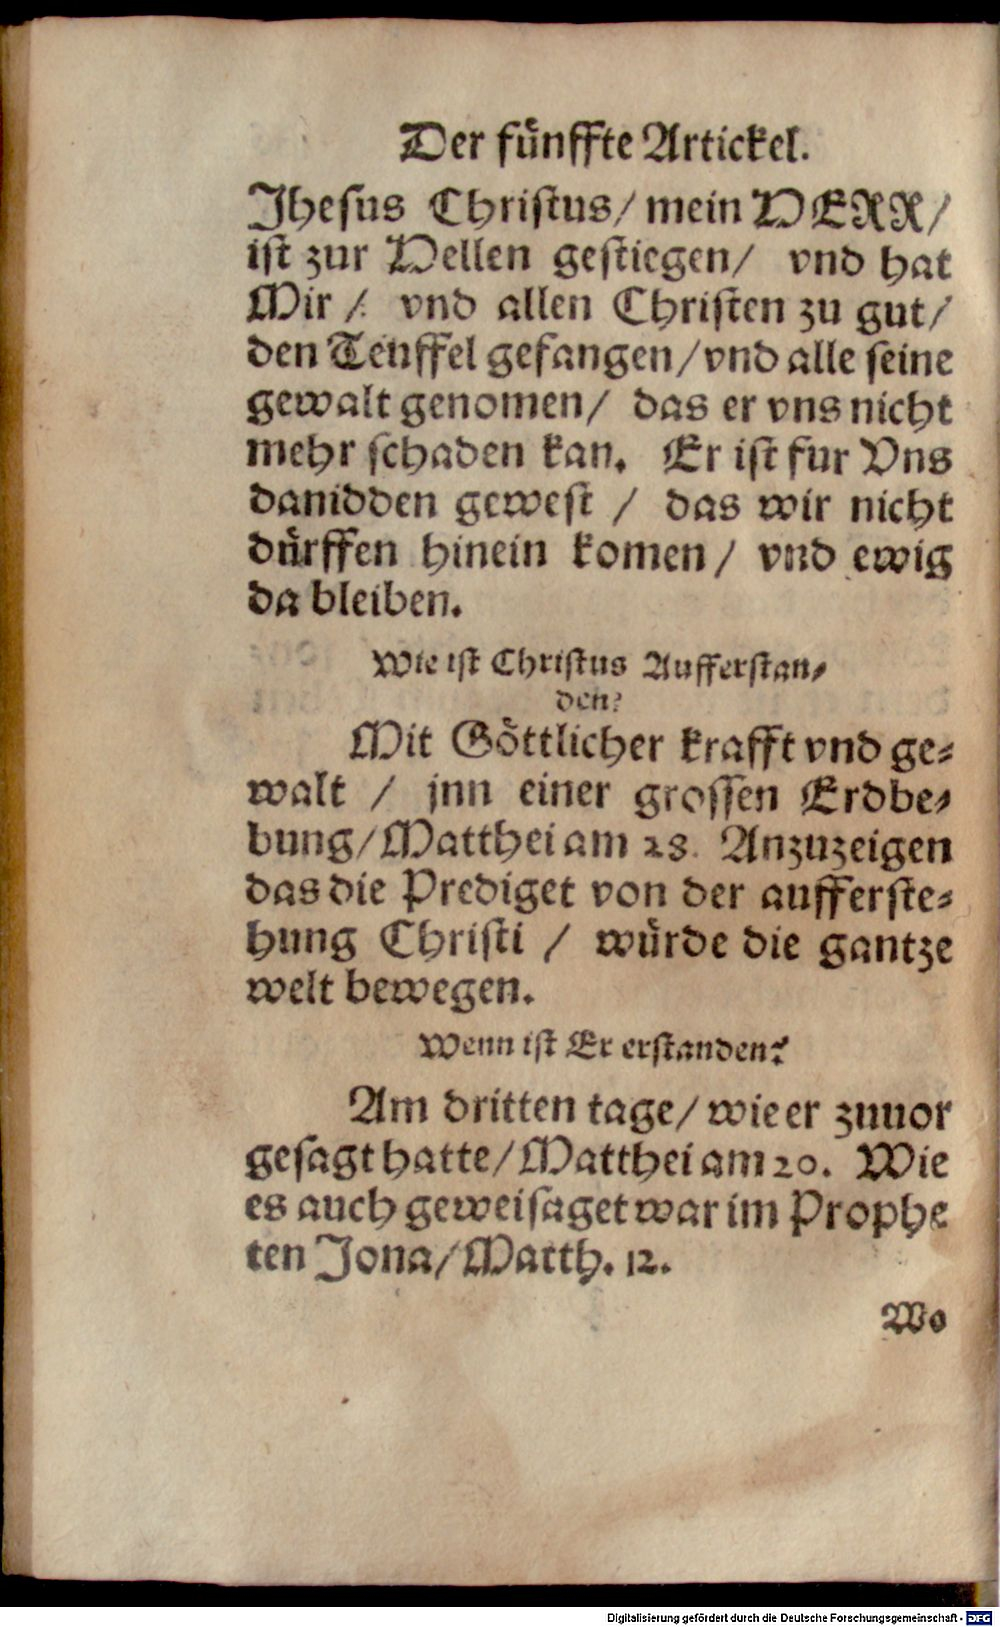 Der fünffte Artickel.
Jhesus Christus/ mein HERR/
ist zur Hellen gestiegen/ vnd hat
Mir / vnd allen Christen zu gut/
den Teuffel gefangen/vnd alle seine
gewalt genomen/ das er vns nicht
mehr schaden kan. Er ist fur Vns
danidden gewest / das wir nicht
dürffen hinein komen/ vnd ewig
da bleiben.
Wie ist Christus Aufferstan-
den?
Mit Göttlicher krafft vnd ge-
walt / jnn einer grossen Erdbe-
bung/Matthei am 28. Anzuzeigen
das die Prediget von der aufferste-
hung Christi / würde die gantze
welt bewegen.
Wenn ist Er erstanden?
Am dritten tage/ wie er zuuor
gesagt hatte/Matthei am 20. Wie
es auch geweisaget war im Prophe
ten Jona/Matth. 12.
Wo
Digitalisierung gefördert durch die Deutsche Forschungsgemeinschaft - DFG